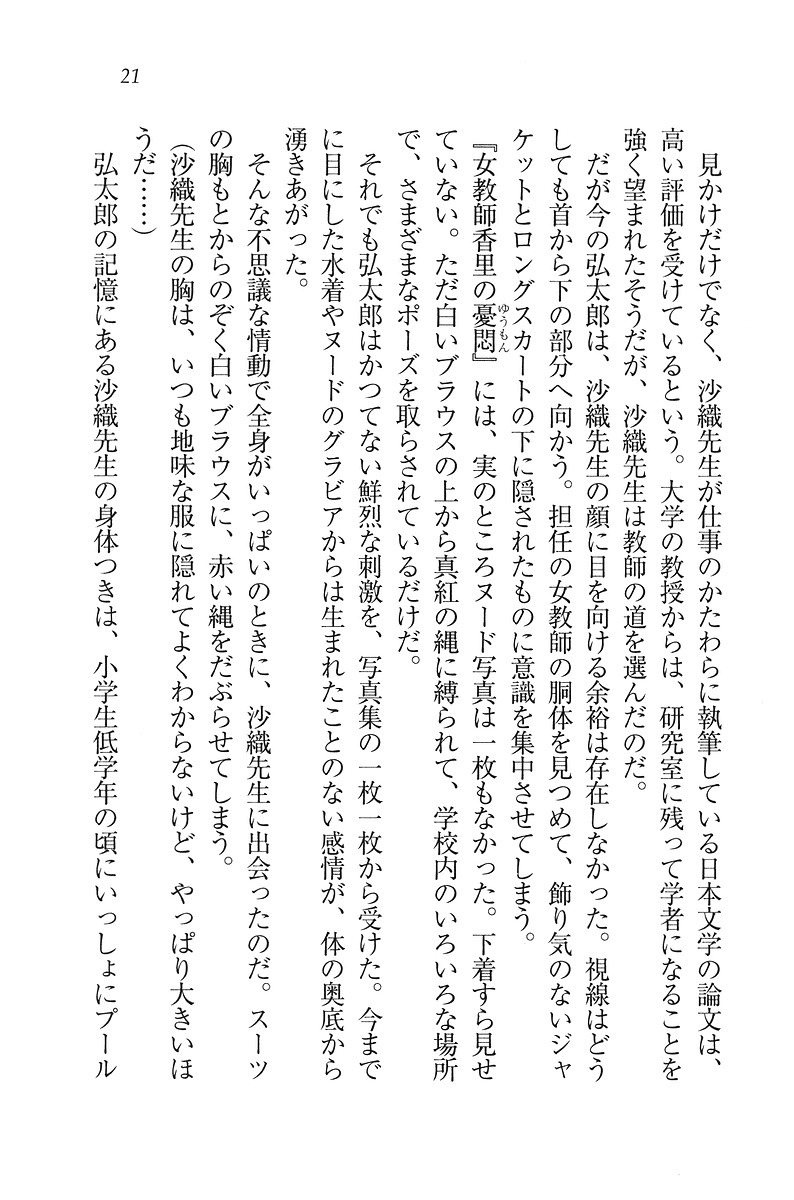 21
見かけだけでなく、沙織先生が仕事のかたわらに執筆している日本文学の論文は、
高い評価を受けているという。大学の教授からは、研究室に残って学者になることを
強く望まれたそうだが、沙織先生は教師の道を選んだのだ。
だが今の弘太郎は、沙織先生の顔に目を向ける余裕は存在しなかった。視線はどう
しても首から下の部分へ向かう。担任の女教師の胴体を見つめて、飾り気のないジャ
ケットとロングスカートの下に隠されたものに意識を集中させてしまう。
『女教師香里の憂悶』には、実のところヌード写真は一枚もなかった。下着すら見せ
ゆうもん
ていない。ただ白いブラウスの上から真紅の縄に縛られて、学校内のいろいろな場所
で、さまざまなポーズを取らされているだけだ。
それでも弘太郎はかつてない鮮烈な刺激を、写真集の一枚一枚から受けた。今まで
に目にした水着やヌードのグラビアからは生まれたことのない感情が、体の奥底から
湧きあがった。
そんな不思議な情動で全身がいっぱいのときに、沙織先生に出会ったのだ。スーツ
の胸もとからのぞく白いブラウスに、赤い縄をだぶらせてしまう。
(沙織先生の胸は、いつも地味な服に隠れてよくわからないけど、やっぱり大きいほ
うだ……)
弘太郎の記憶にある沙織先生の身体つきは、小学生低学年の頃にいっしょにプール